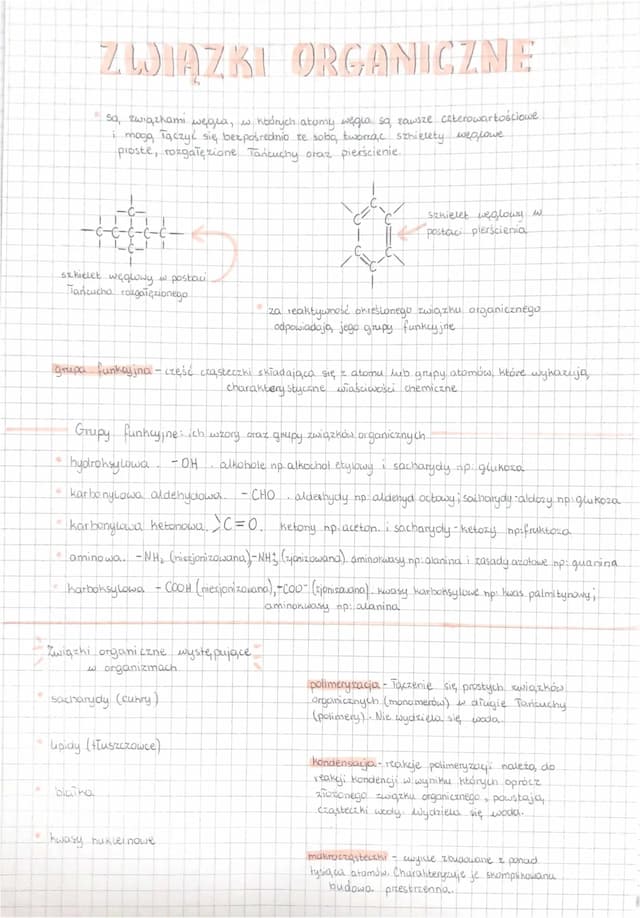 ZWIĄZKI ORGANICZNE
są związkami węgla, w których atomy węgla są zawsze czterowartościowe
i mogą łączyć się bezpośrednio ze sobą tworząc szkielety węglowe
proste, rozgałęzione łańcuchy oraz pierścienie.
-C-
-C-C-C-C-C-
-C-
szkielet węglowy w postaci
łańcucha rozgałęzionego
C
C C
C C
C
szkielet węglowy w
postaci pierścienia
za reaktywność określonego związku organicznego
odpowiadają jego grupy funkcyjne
grupa funkcyjna - część cząsteczki składająca się z atomu lub grupy atomów, które wykazują
charakterystyczne właściwości chemiczne
Grupy funkcyjne: ich wzory oraz grupy związków organicznych
hydroksylowa. -OH. alkohole np. alkochol etylowy i sacharydy np: glukoza
karbonylowa aldehydowa. -CHO. aldehydy np: aldehyd octowy; sacharydy: aldozy np: glukoza
karbonylowa ketonowa. >C=O. ketony np. aceton. i sacharydy - ketozy np: fruktoza
aminowa. -NH₂ (niezjonizowana), -NH₃⁺ (zjonizowana). aminokwasy np: alanina i zasady azotowe np: guanina
karboksylowa -COOH (niezjonizowana), -COO⁻ (zjonizowana). kwasy karboksylowe np: kwas palmitynowy;
aminokwasy np: alanina
Związki organiczne występujące
w organizmach
sacharydy (cukry)
lipidy (tłuszczowce)
białka
kwasy nukleinowe
polimeryzacja - łączenie się prostych związków
organicznych (monomerów) w długie łańcuchy
(polimery). Nie wydziela się woda.
kondensacja - reakcje polimeryzacji należą do
reakcji kondencji w wyniku których oprócz
złożonego związku organicznego, powstają
cząsteczki wody. Wydziela się woda.
makrocząsteczki - zwykle zbudowane z ponad
tysiąca atomów. Charakteryzuje je skomplikowana
budowa przestrzenna.